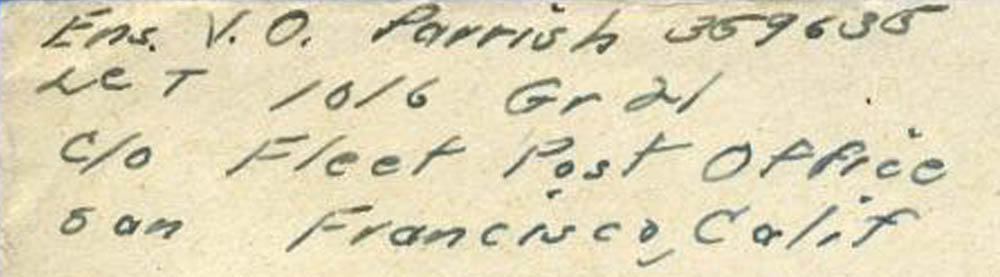 Ens. V. O. Parrish 359635
LCT 1016 Gr 21
C/o Fleet Post Office
San Francisco, Calif